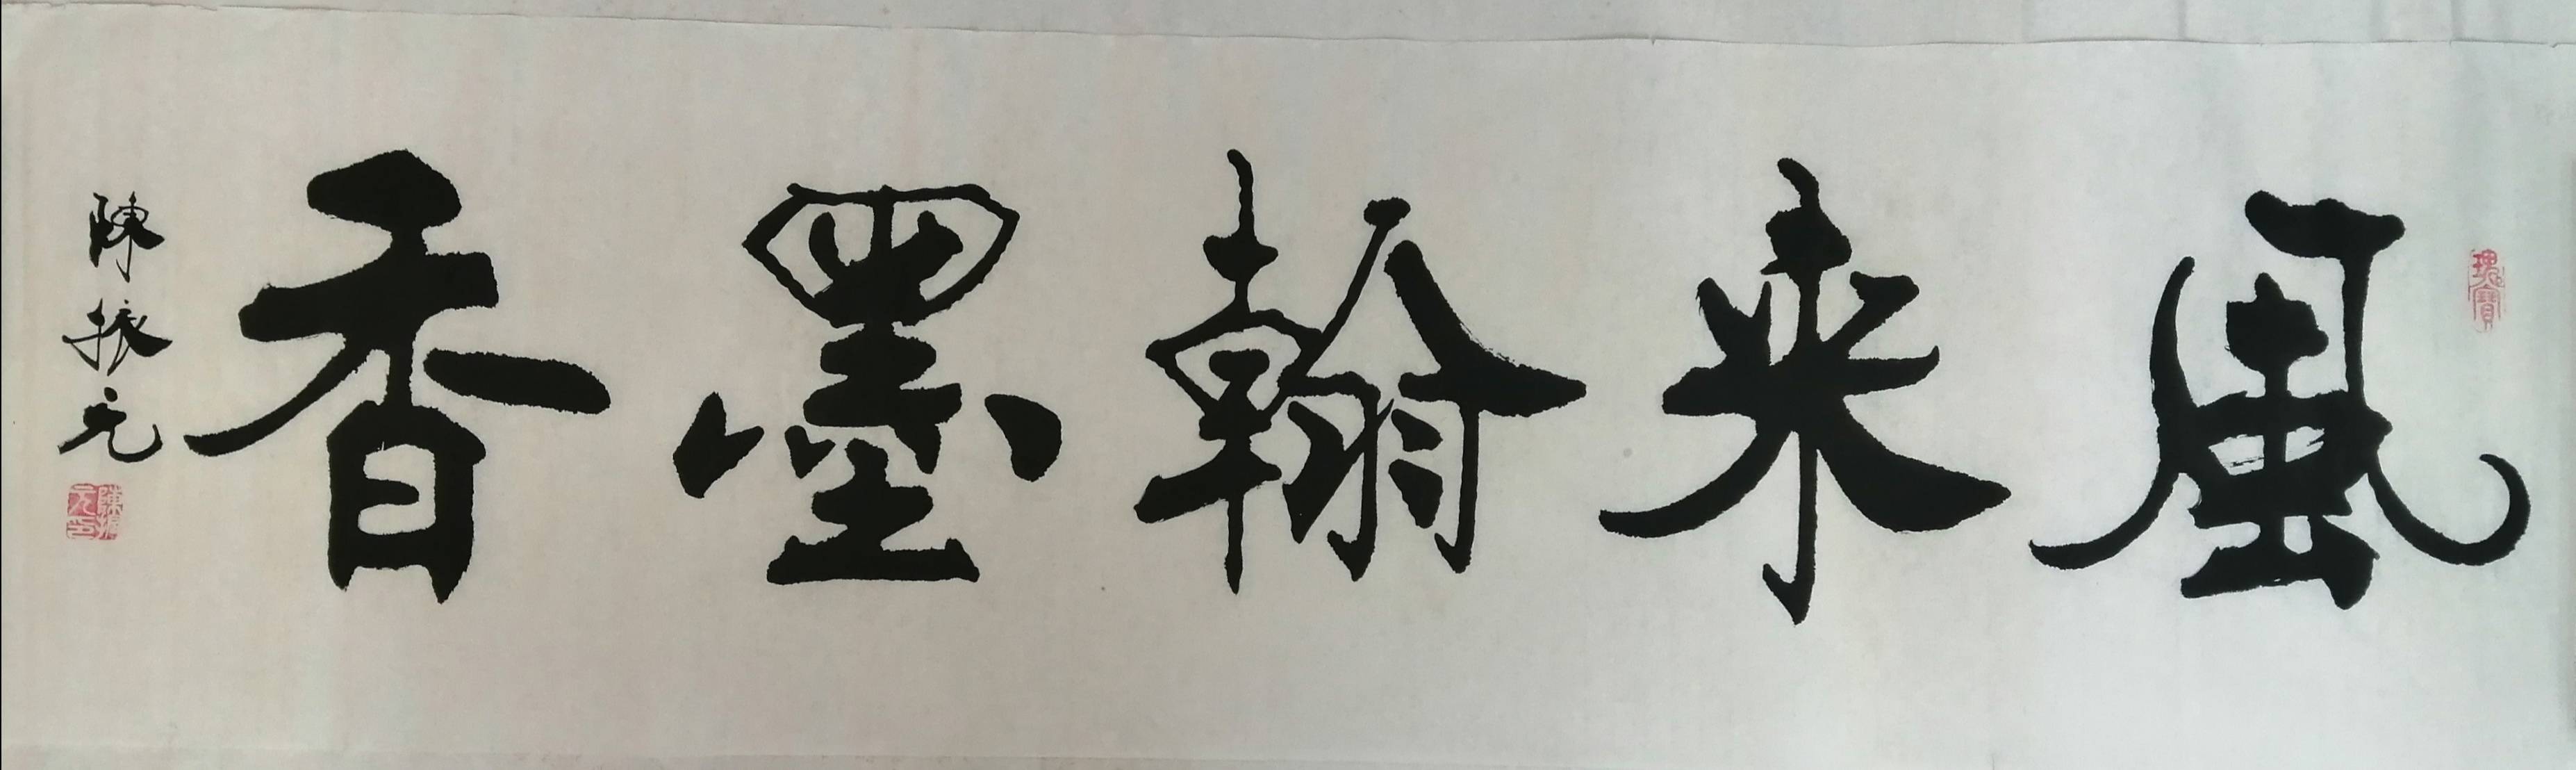 風来翰墨香
陳振元
瑰寶
陳振元印